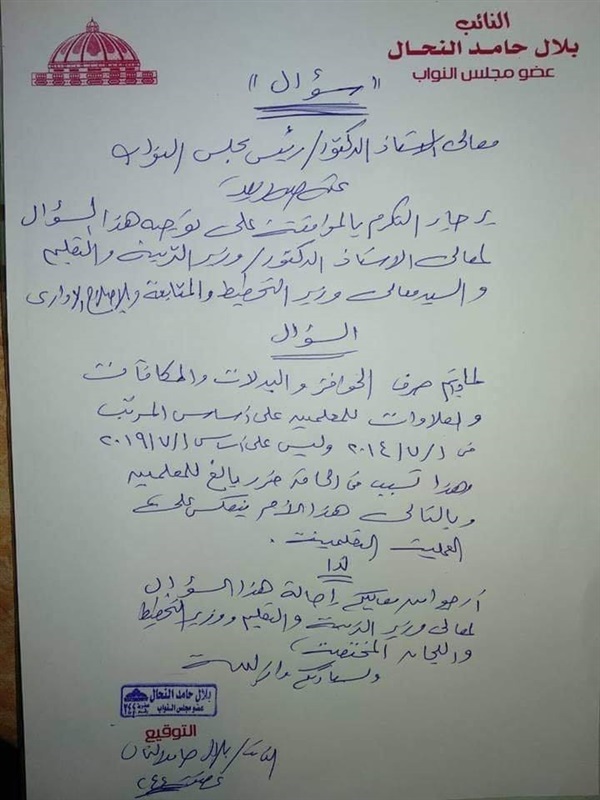 النائب
بلال حامد النحال
عضو مجلس النواب
"سؤال"
معالى الاستاذ الدكتور/ رئيس مجلس النواب
تحية طيبة
برجاء التكرم بالموافقة على توجيه هذا السؤال
لمعالى الاستاذ الدكتور/ وزير التربية والتعليم
والسيد معالى وزير التخطيط والمتابعة والإصلاح الإدارى
السؤال
صرف الحوافز والبدلات والمكافآت
والعلاوات للمعلمين على أساس المرتب
فى ١/٧/٢٠١٤ وليس على أساس ١/٧/٢٠١٩
وهذا تسبب فى إلحاق ضرر بالغ للمعلمين
وبالتالى هذا الأمر ينعكس على
العملية التعليمية .
لذا
أرجو من معاليكم إحالة هذا السؤال
لمعالى وزير التربية والتعليم ووزير التخطيط
واللجان المختصة
ولسيادتكم
بلال حامد النحال
عضو مجلس النواب
التوقيع
النائب/ بلال حامد النحال
٢٤٤